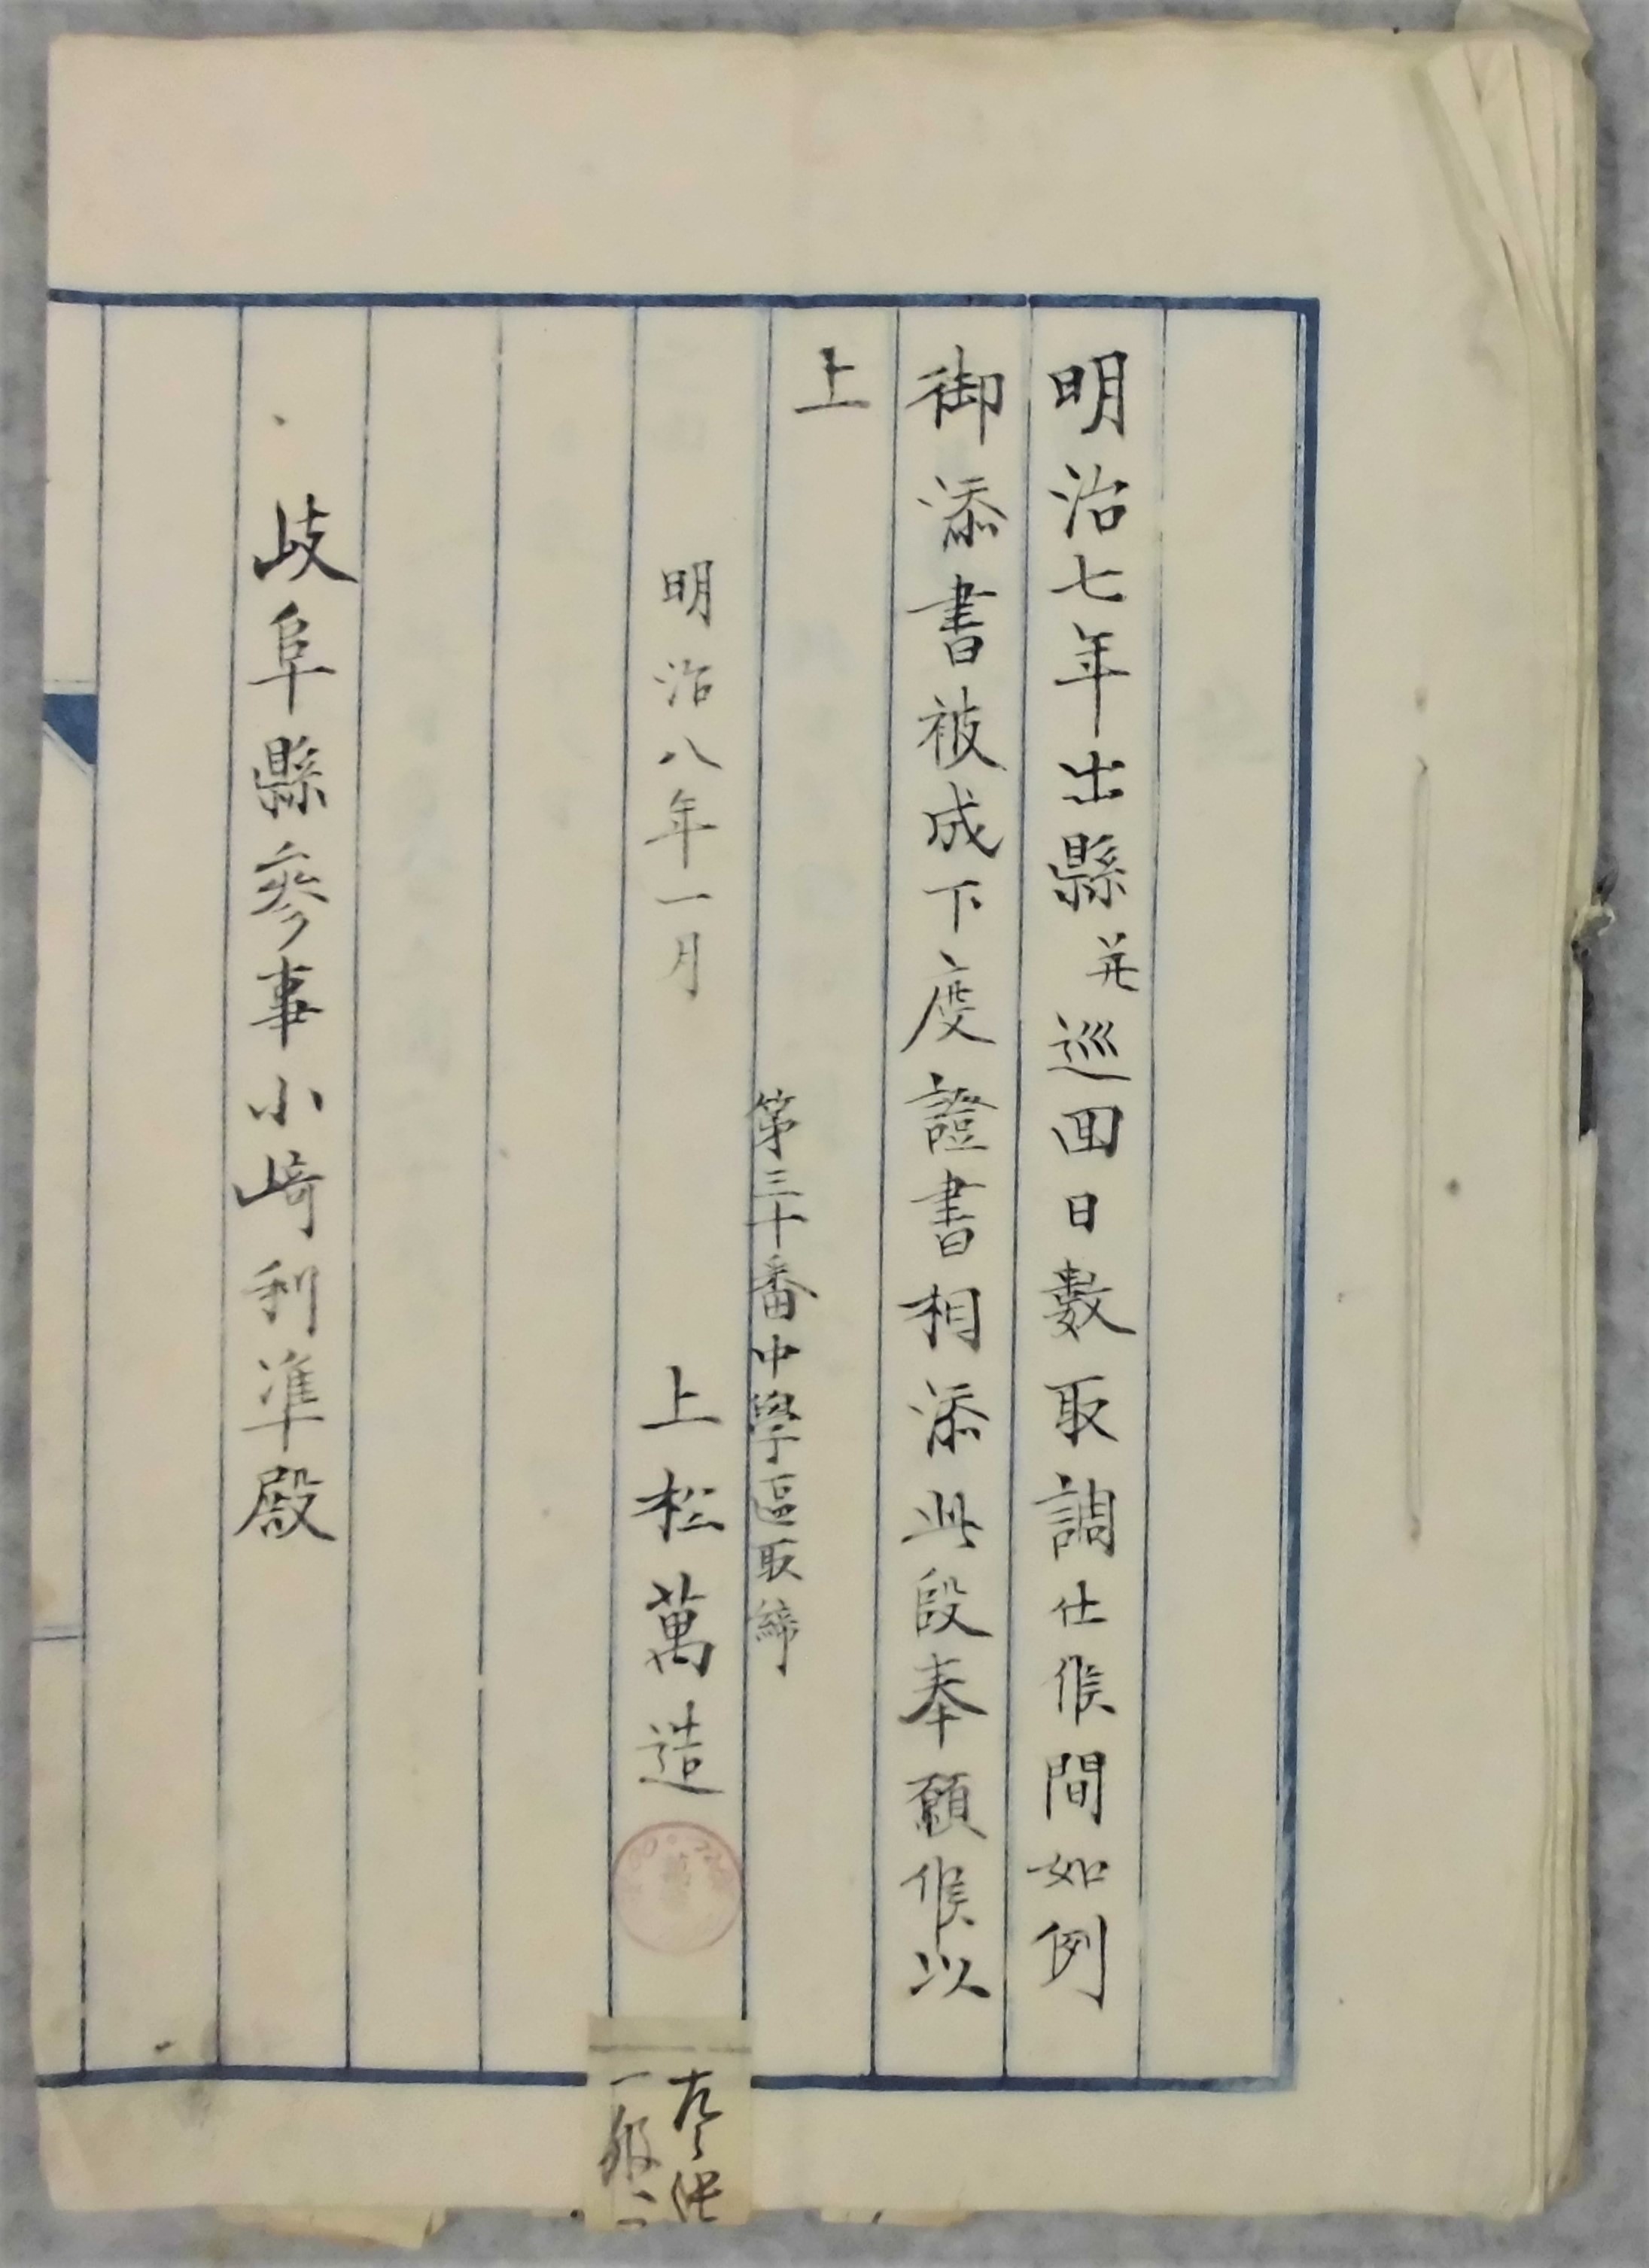 明治七年出縣并巡囬日數取調仕候間如例
御添書被成下度證書相添此段奉願候以
上
第三十番中學區取締
明治八年一月 上松萬造
岐阜縣參事小崎利凖殿